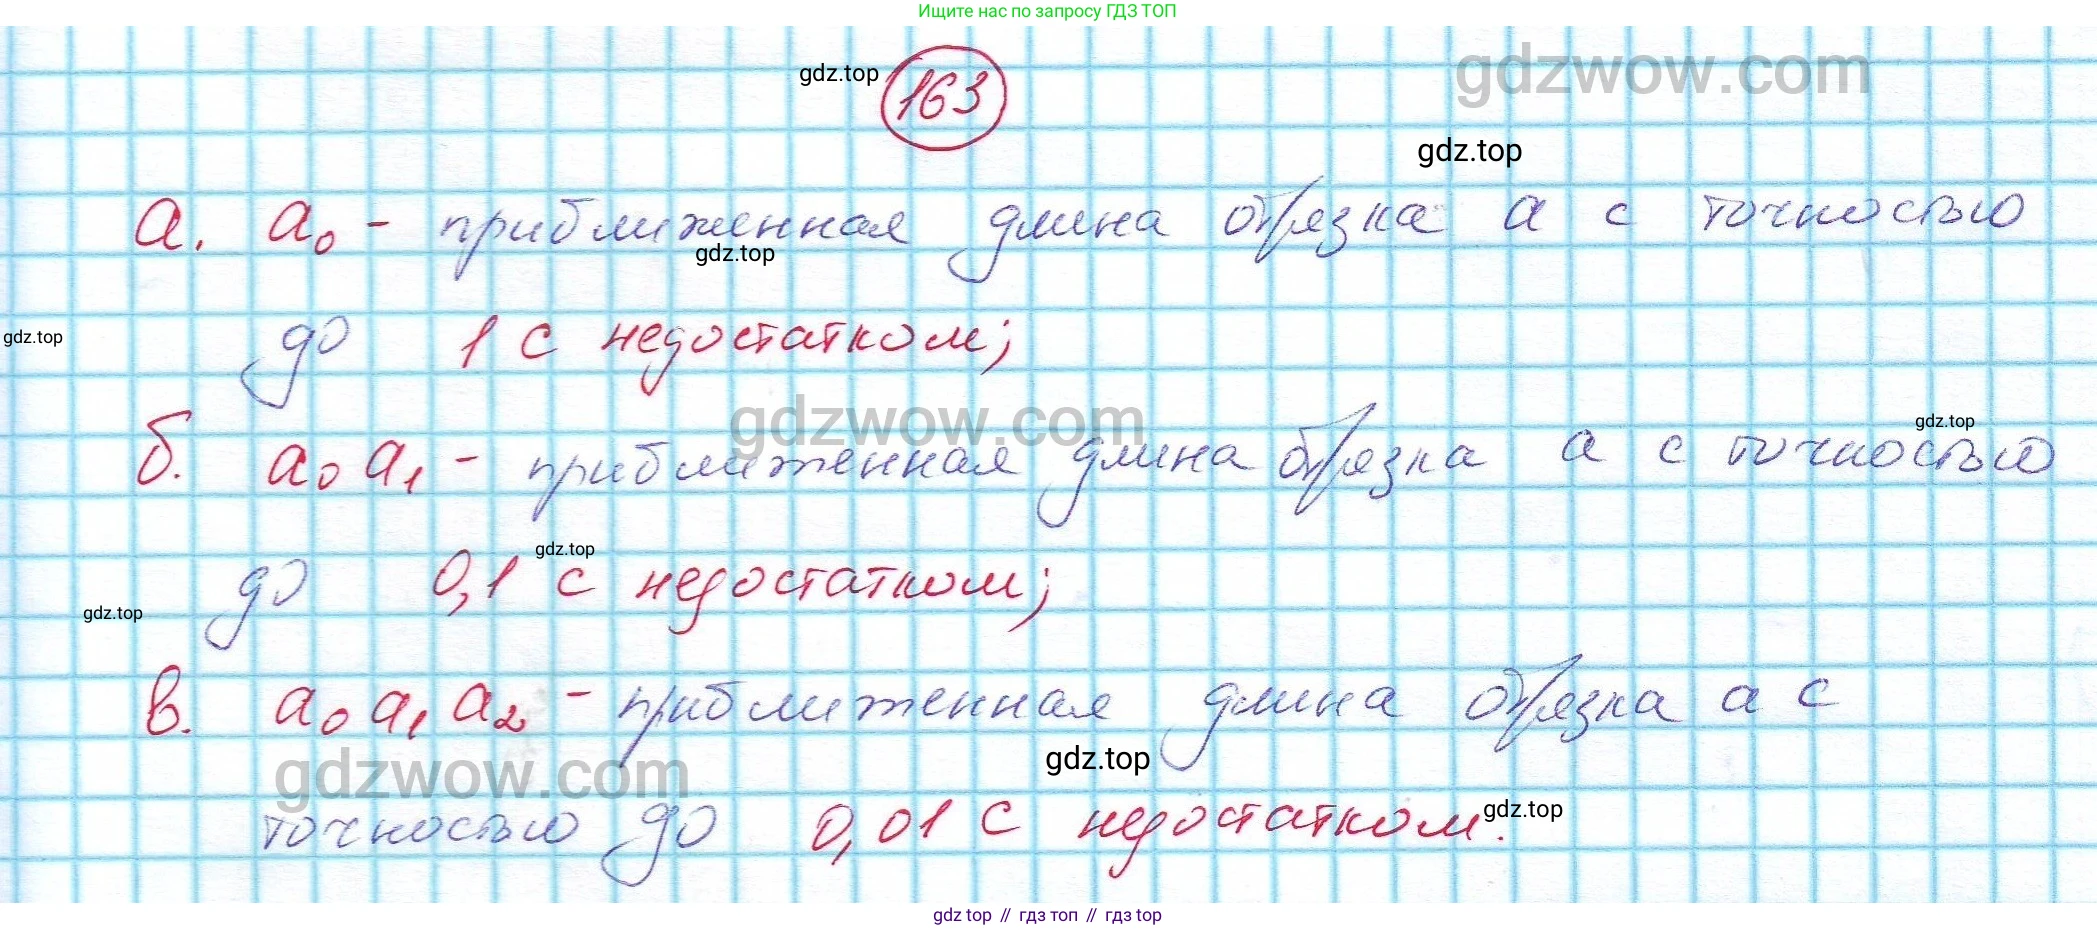 Ищите нас по запросу ГДЗ ТОП
gdz.top
163
gdzwow.com
gdz.top
а. a₀ - приближенная длина отрезка a с точностью
gdz.top
gdz.top
до 1 с недостатком;
gdzwow.com
gdz.top
б. a₀ a₁ - приближенная длина отрезка a с точностью
gdz.top
до 0,1 с недостатком;
gdz.top
в. a₀ a₁ a₂ - приближенная длина отрезка a с
gdzwow.com
gdz.top
точностью до 0,01 с недостатком.
gdz.top
gdz top // гдз топ // гдз top